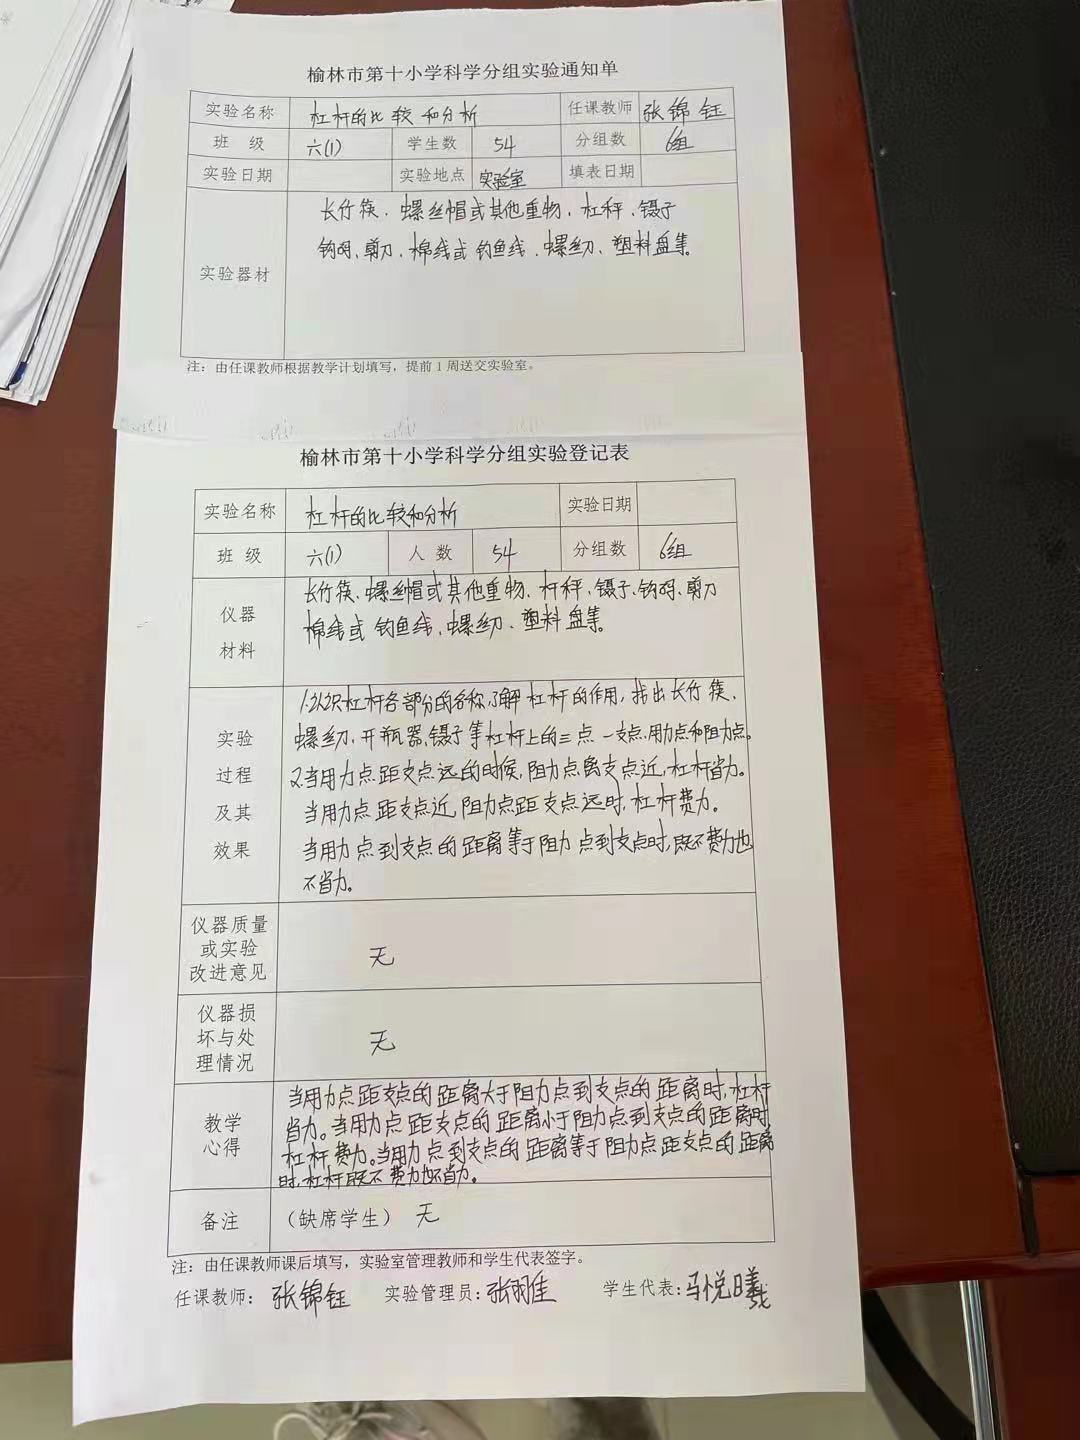 榆林市第十小学科学分组实验通知单
实验名称 杠杆的比较和分析 任课教师 张锦钰
班 级 六(1) 学生数 54 分组数 6组
实验日期 实验地点 实验室 填表日期
实验器材
长竹筷、螺丝帽或其他重物、杠秤、镊子
钩码、剪刀、棉线或钓鱼线、螺丝刀、塑料盘等。
注：由任课教师根据教学计划填写，提前1周送交实验室。
榆林市第十小学科学分组实验登记表
实验名称 杠杆的比较和分析 实验日期
班 级 六(1) 人 数 54 分组数 6组
仪器
材料
长竹筷、螺丝帽或其他重物、杆秤、镊子、钩码、剪刀
棉线或钓鱼线、螺丝刀、塑料盘等。
实验
过程
及其
效果
1.认识杠杆各部分的名称,了解杠杆的作用，找出长竹筷、
螺丝刀、开瓶器、镊子等杠杆上的三点一支点、用力点和阻力点。
2.当用力点距支点远的时候,阻力点离支点近,杠杆省力。
当用力点距支点近,阻力点距支点远时,杠杆费力。
当用力点到支点的距离等于阻力点到支点时,既不费力也
不省力。
仪器质量
或实验
改进意见
无
仪器损
坏与处
理情况
无
教学
心得
当用力点距支点的距离大于阻力点到支点的距离时,杠杆
省力。当用力点距支点的距离小于阻力点到支点的距离时
杠杆费力。当用力点到支点的距离等于阻力点距支点的距离
时,杠杆既不费力也不省力。
备注 （缺席学生） 无
注：由任课教师课后填写，实验室管理教师和学生代表签字。
任课教师： 张锦钰 实验管理员：张翔佳 学生代表：马悦曦